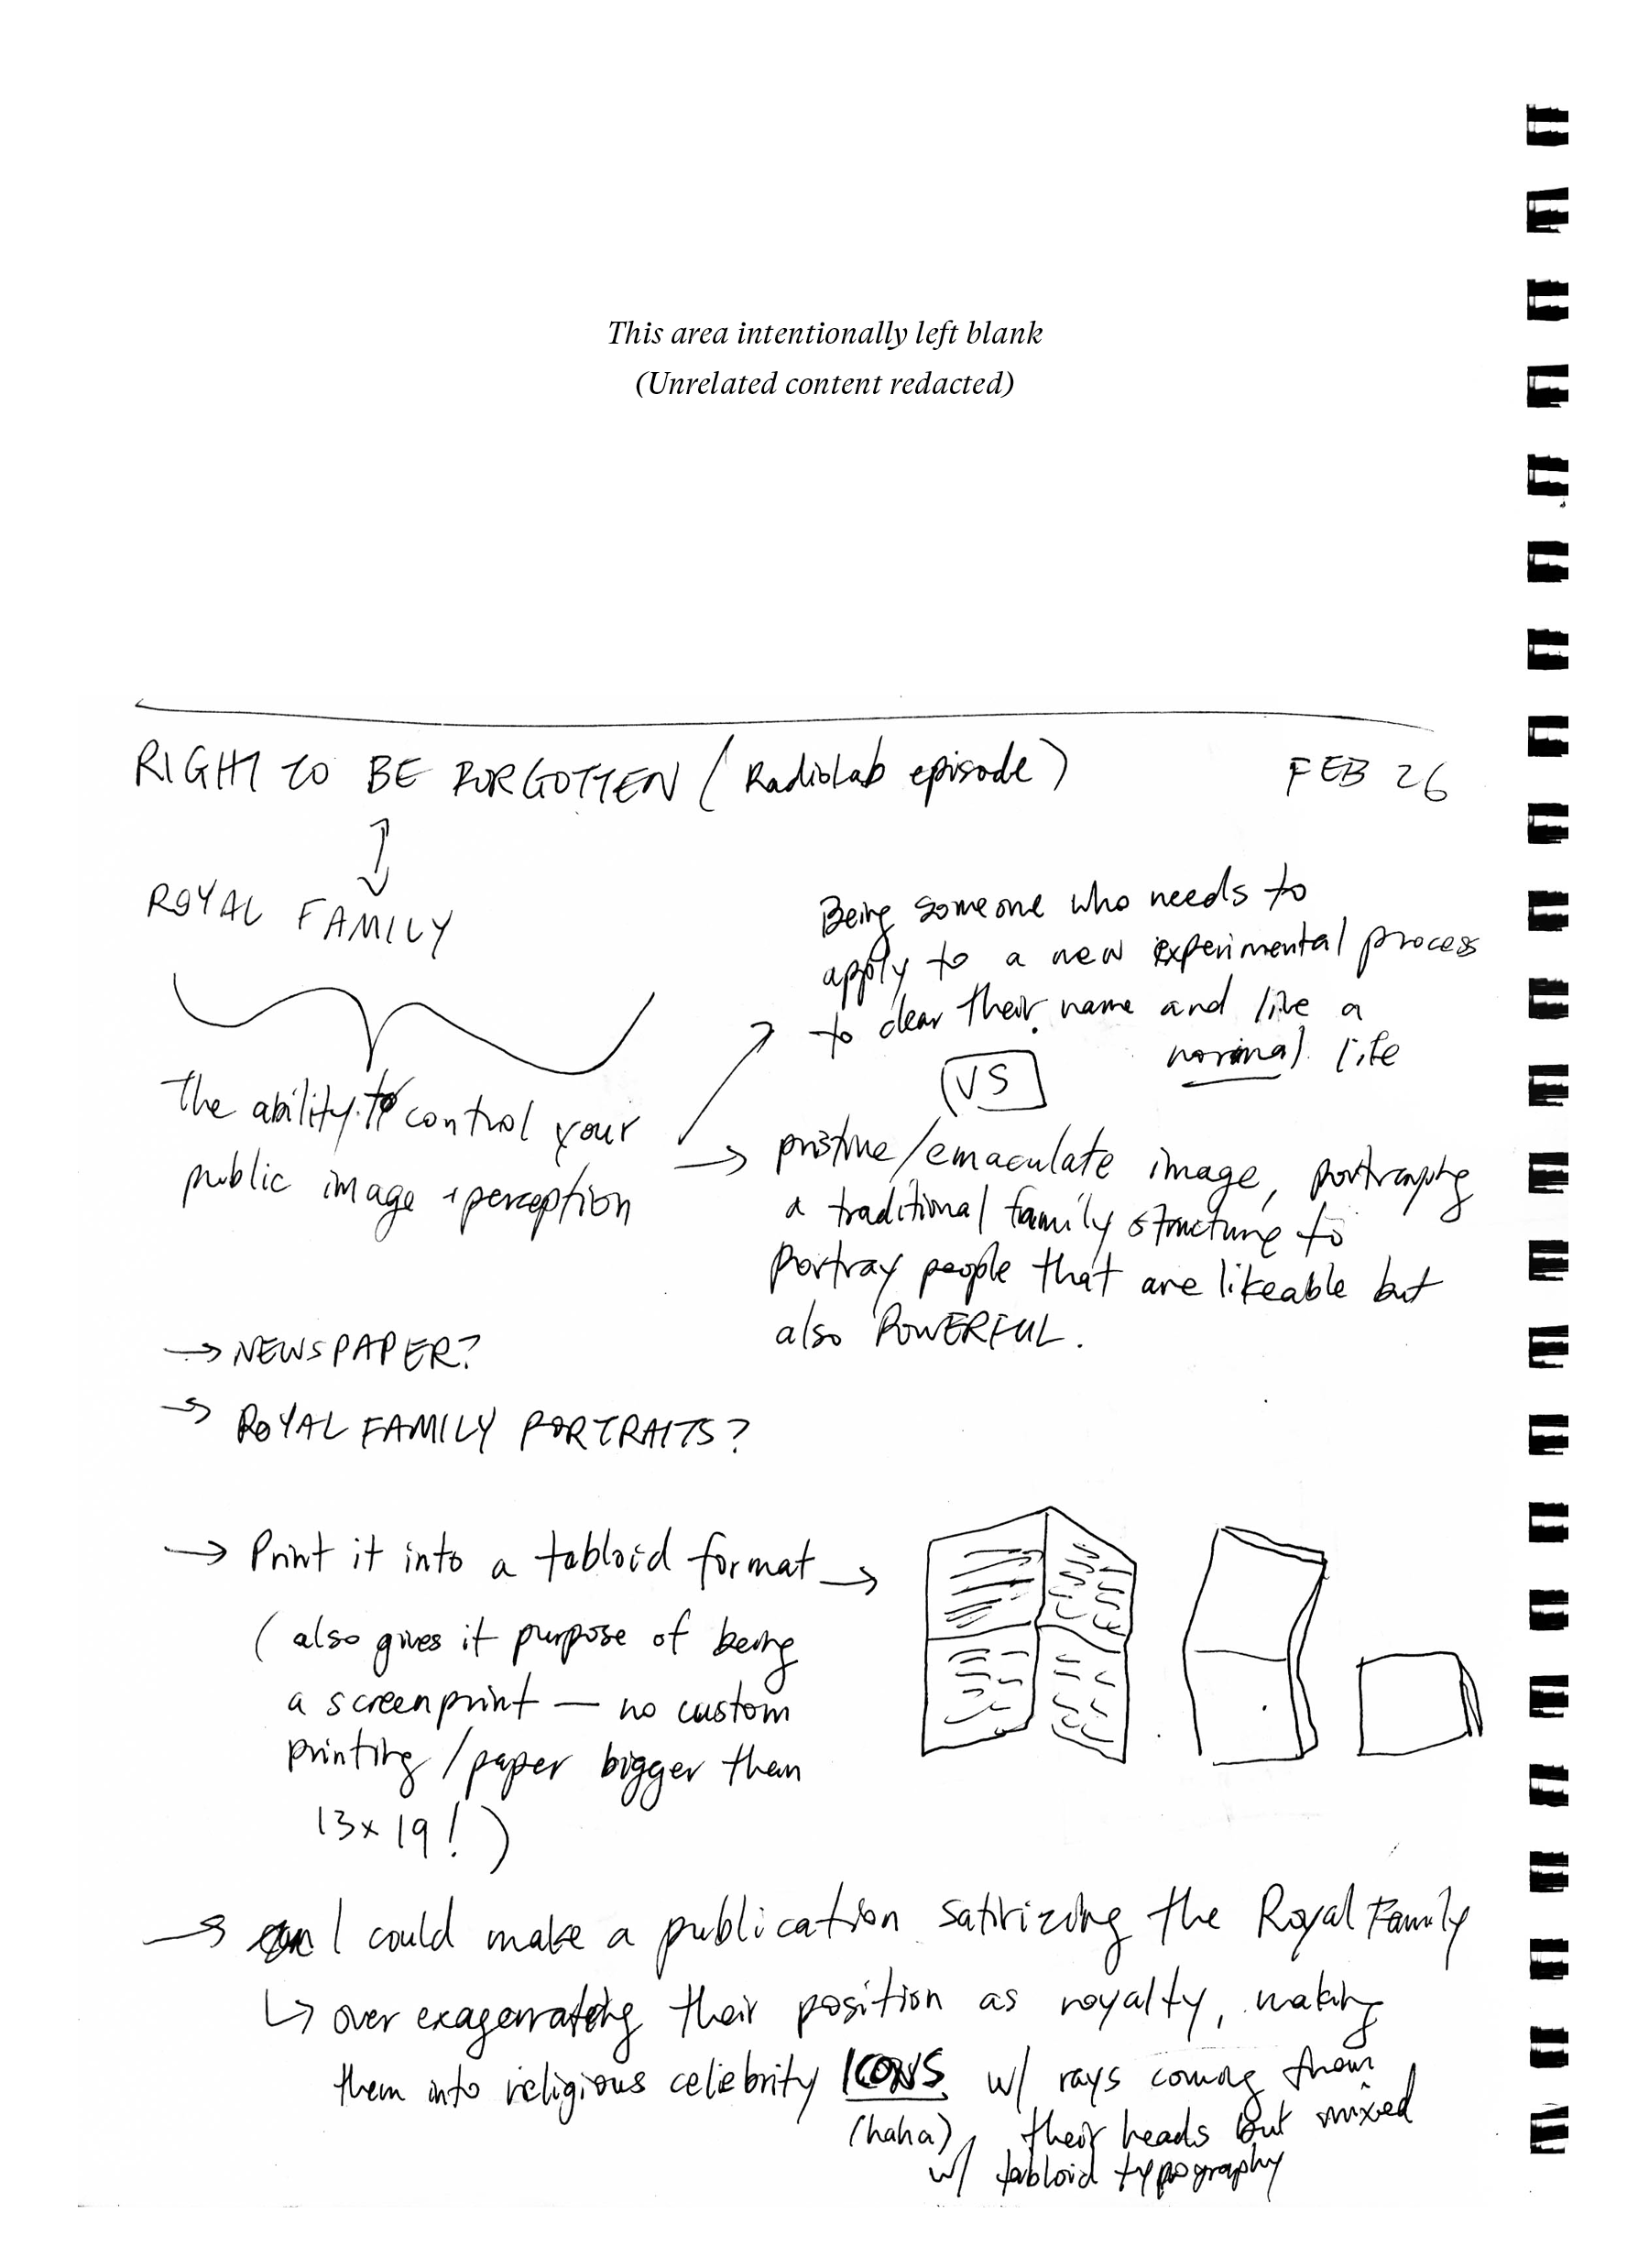 This area intentionally left blank
(Unrelated content redacted)
RIGHT TO BE FORGOTTEN (RadioLab episode)
FEB 26
ROYAL FAMILY
The ability to control your
public image + perception
Being someone who needs to
apply to a new experimental process
to clear their name and live a
normal life
VS
pristine/emaculate image, portraying
a traditional family structure to
portray people that are likeable but
also POWERFUL.
→ NEWSPAPER?
→ ROYAL FAMILY PORTRAITS?
→ Print it into a tabloid format →
(also gives it purpose of being
a screenprint — no custom
printing/paper bigger than
13x19!)
→ I could make a publication satirizing the Royal Family
↳ over exagerrating their position as royalty, making
them into religious celebrity ICONS w/ rays coming from
(haha), their heads but mixed
w/ tabloid typography